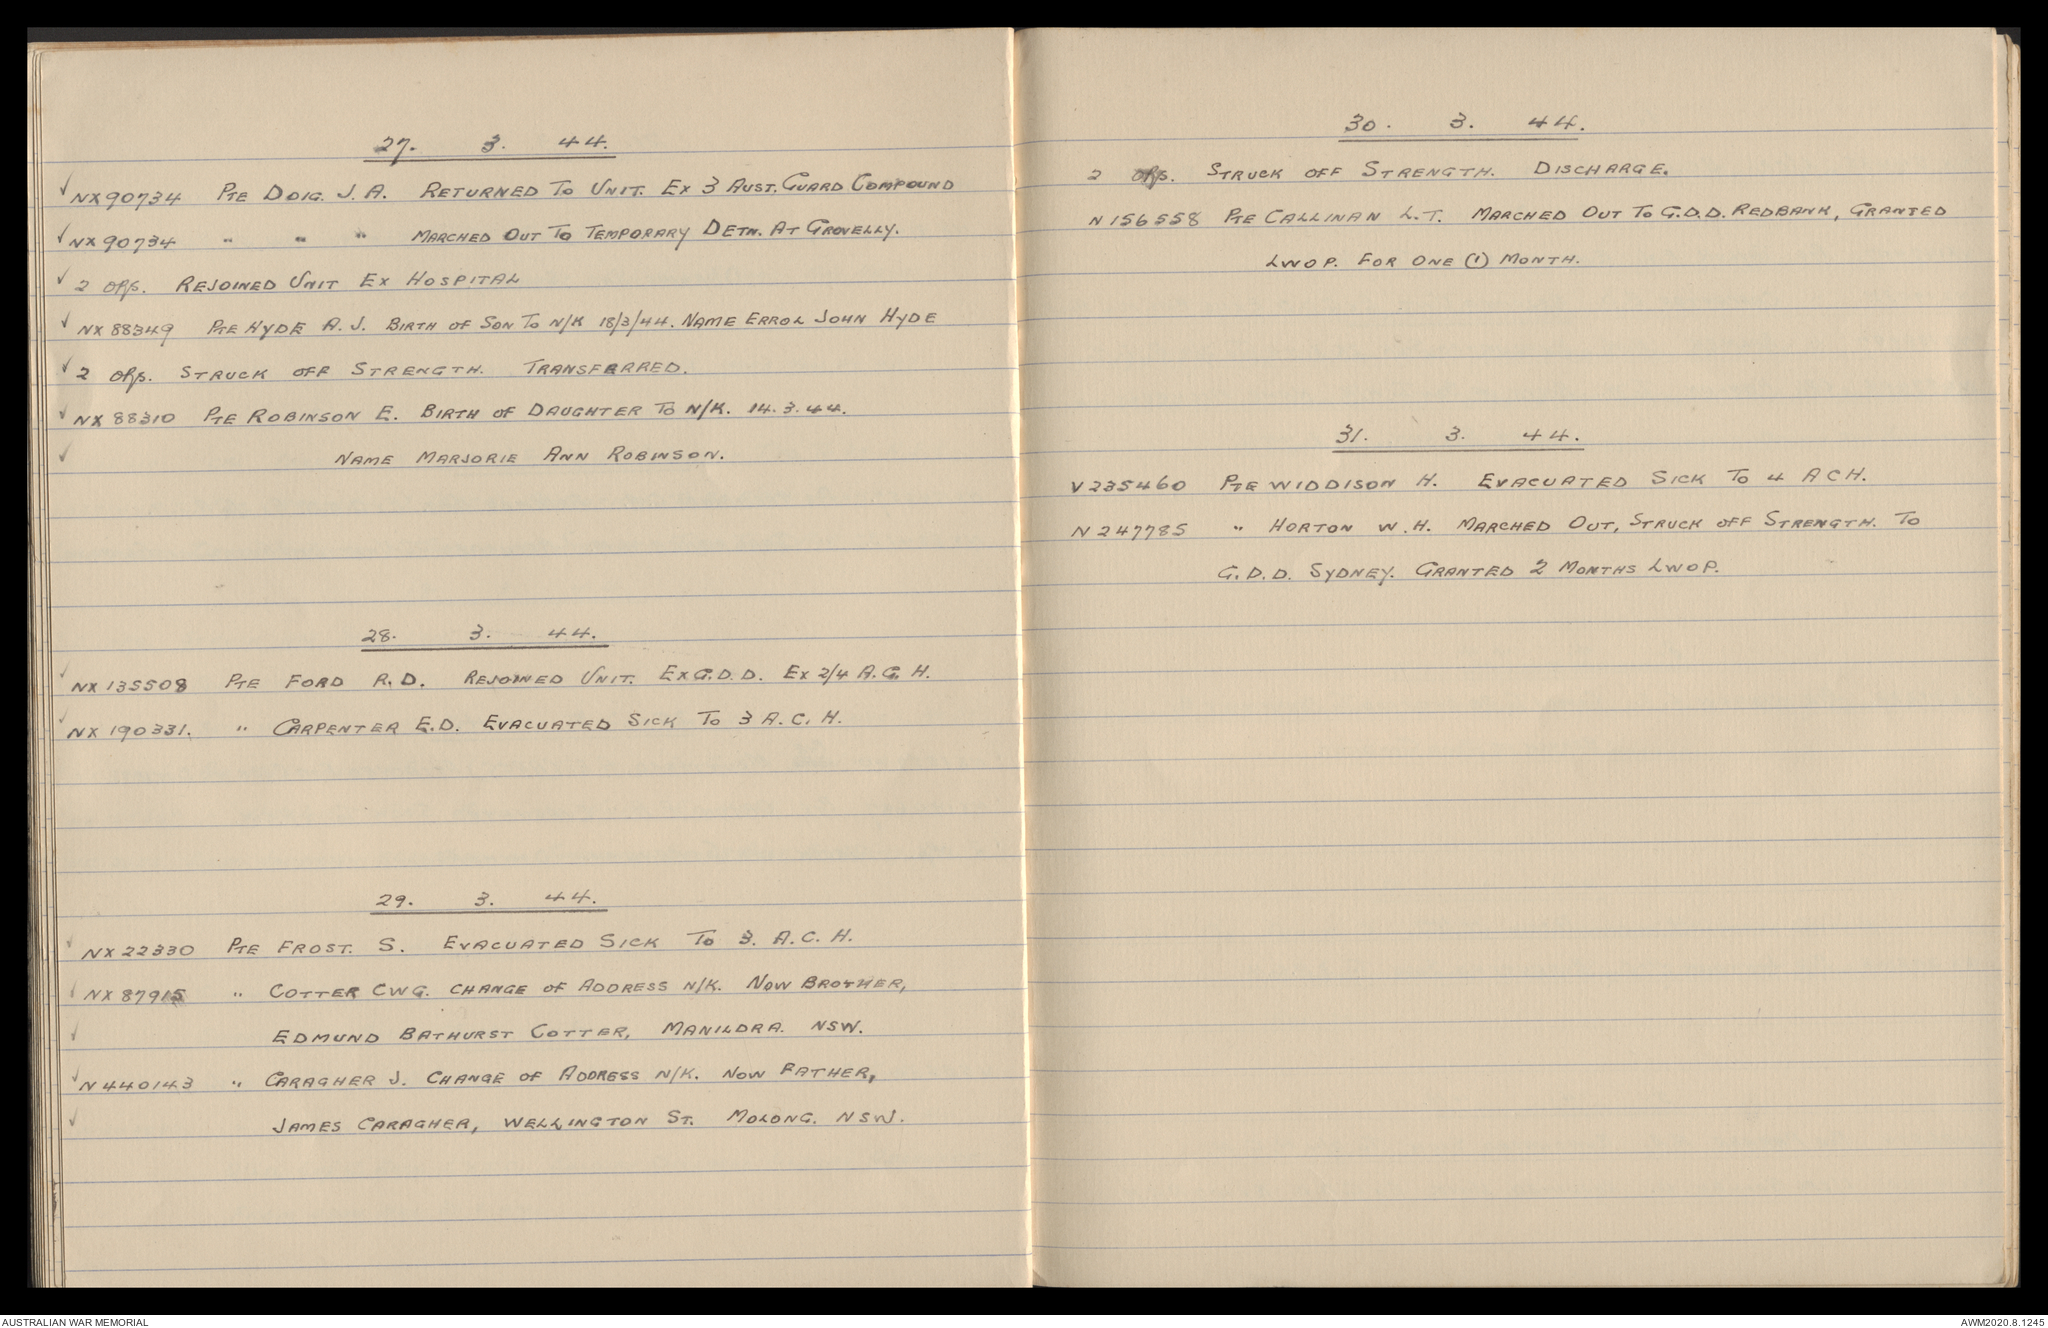 27. 3. 44.
✓ NX90734 Pte Doig. J. A. Returned To Unit. Ex 3 Aust. Guard Compound
✓ NX90734 " " " Marched Out To Temporary Detn. At Grovelly.
✓ 2 ORs. Rejoined Unit Ex Hospital
✓ NX88349 Pte Hyde A. J. Birth of Son To N/K 18/3/44. Name Errol John Hyde
✓ 2 ORs. Struck off Strength. Transferred.
✓ NX88310 Pte Robinson E. Birth of Daughter To N/K. 14.3.44.
✓ Name Marjorie Ann Robinson.
28. 3. 44.
✓ NX135508 Pte Ford R. D. Rejoined Unit. Ex G.D.D. Ex 2/4 A.G.H.
✓ NX190331. " Carpenter E.D. Evacuated Sick To 3 A.C.H.
29. 3. 44.
✓ NX22330 Pte Frost. S. Evacuated Sick To 3. A.C.H.
✓ NX87915 " Cotter CWG. Change of Address N/K. Now Brother,
✓ Edmund Bathurst Cotter, Manildra. NSW.
✓ N440143 " Caragher J. Change of Address N/K. Now Father,
✓ James Caragher, Wellington St. Molong. NSW.
30. 3. 44.
2 ORs. Struck off Strength. Discharge.
N156558 Pte Callinan L.T. Marched Out To G.D.D. Redbank, Granted
LWOP. For One (1) Month.
31. 3. 44.
V235460 Pte Widdison H. Evacuated Sick To 4 ACH.
N247785 " Horton W.H. Marched Out, Struck off Strength. To
G.D.D. Sydney. Granted 2 Months LWOP.
AUSTRALIAN WAR MEMORIAL
AWM2020.8.1245